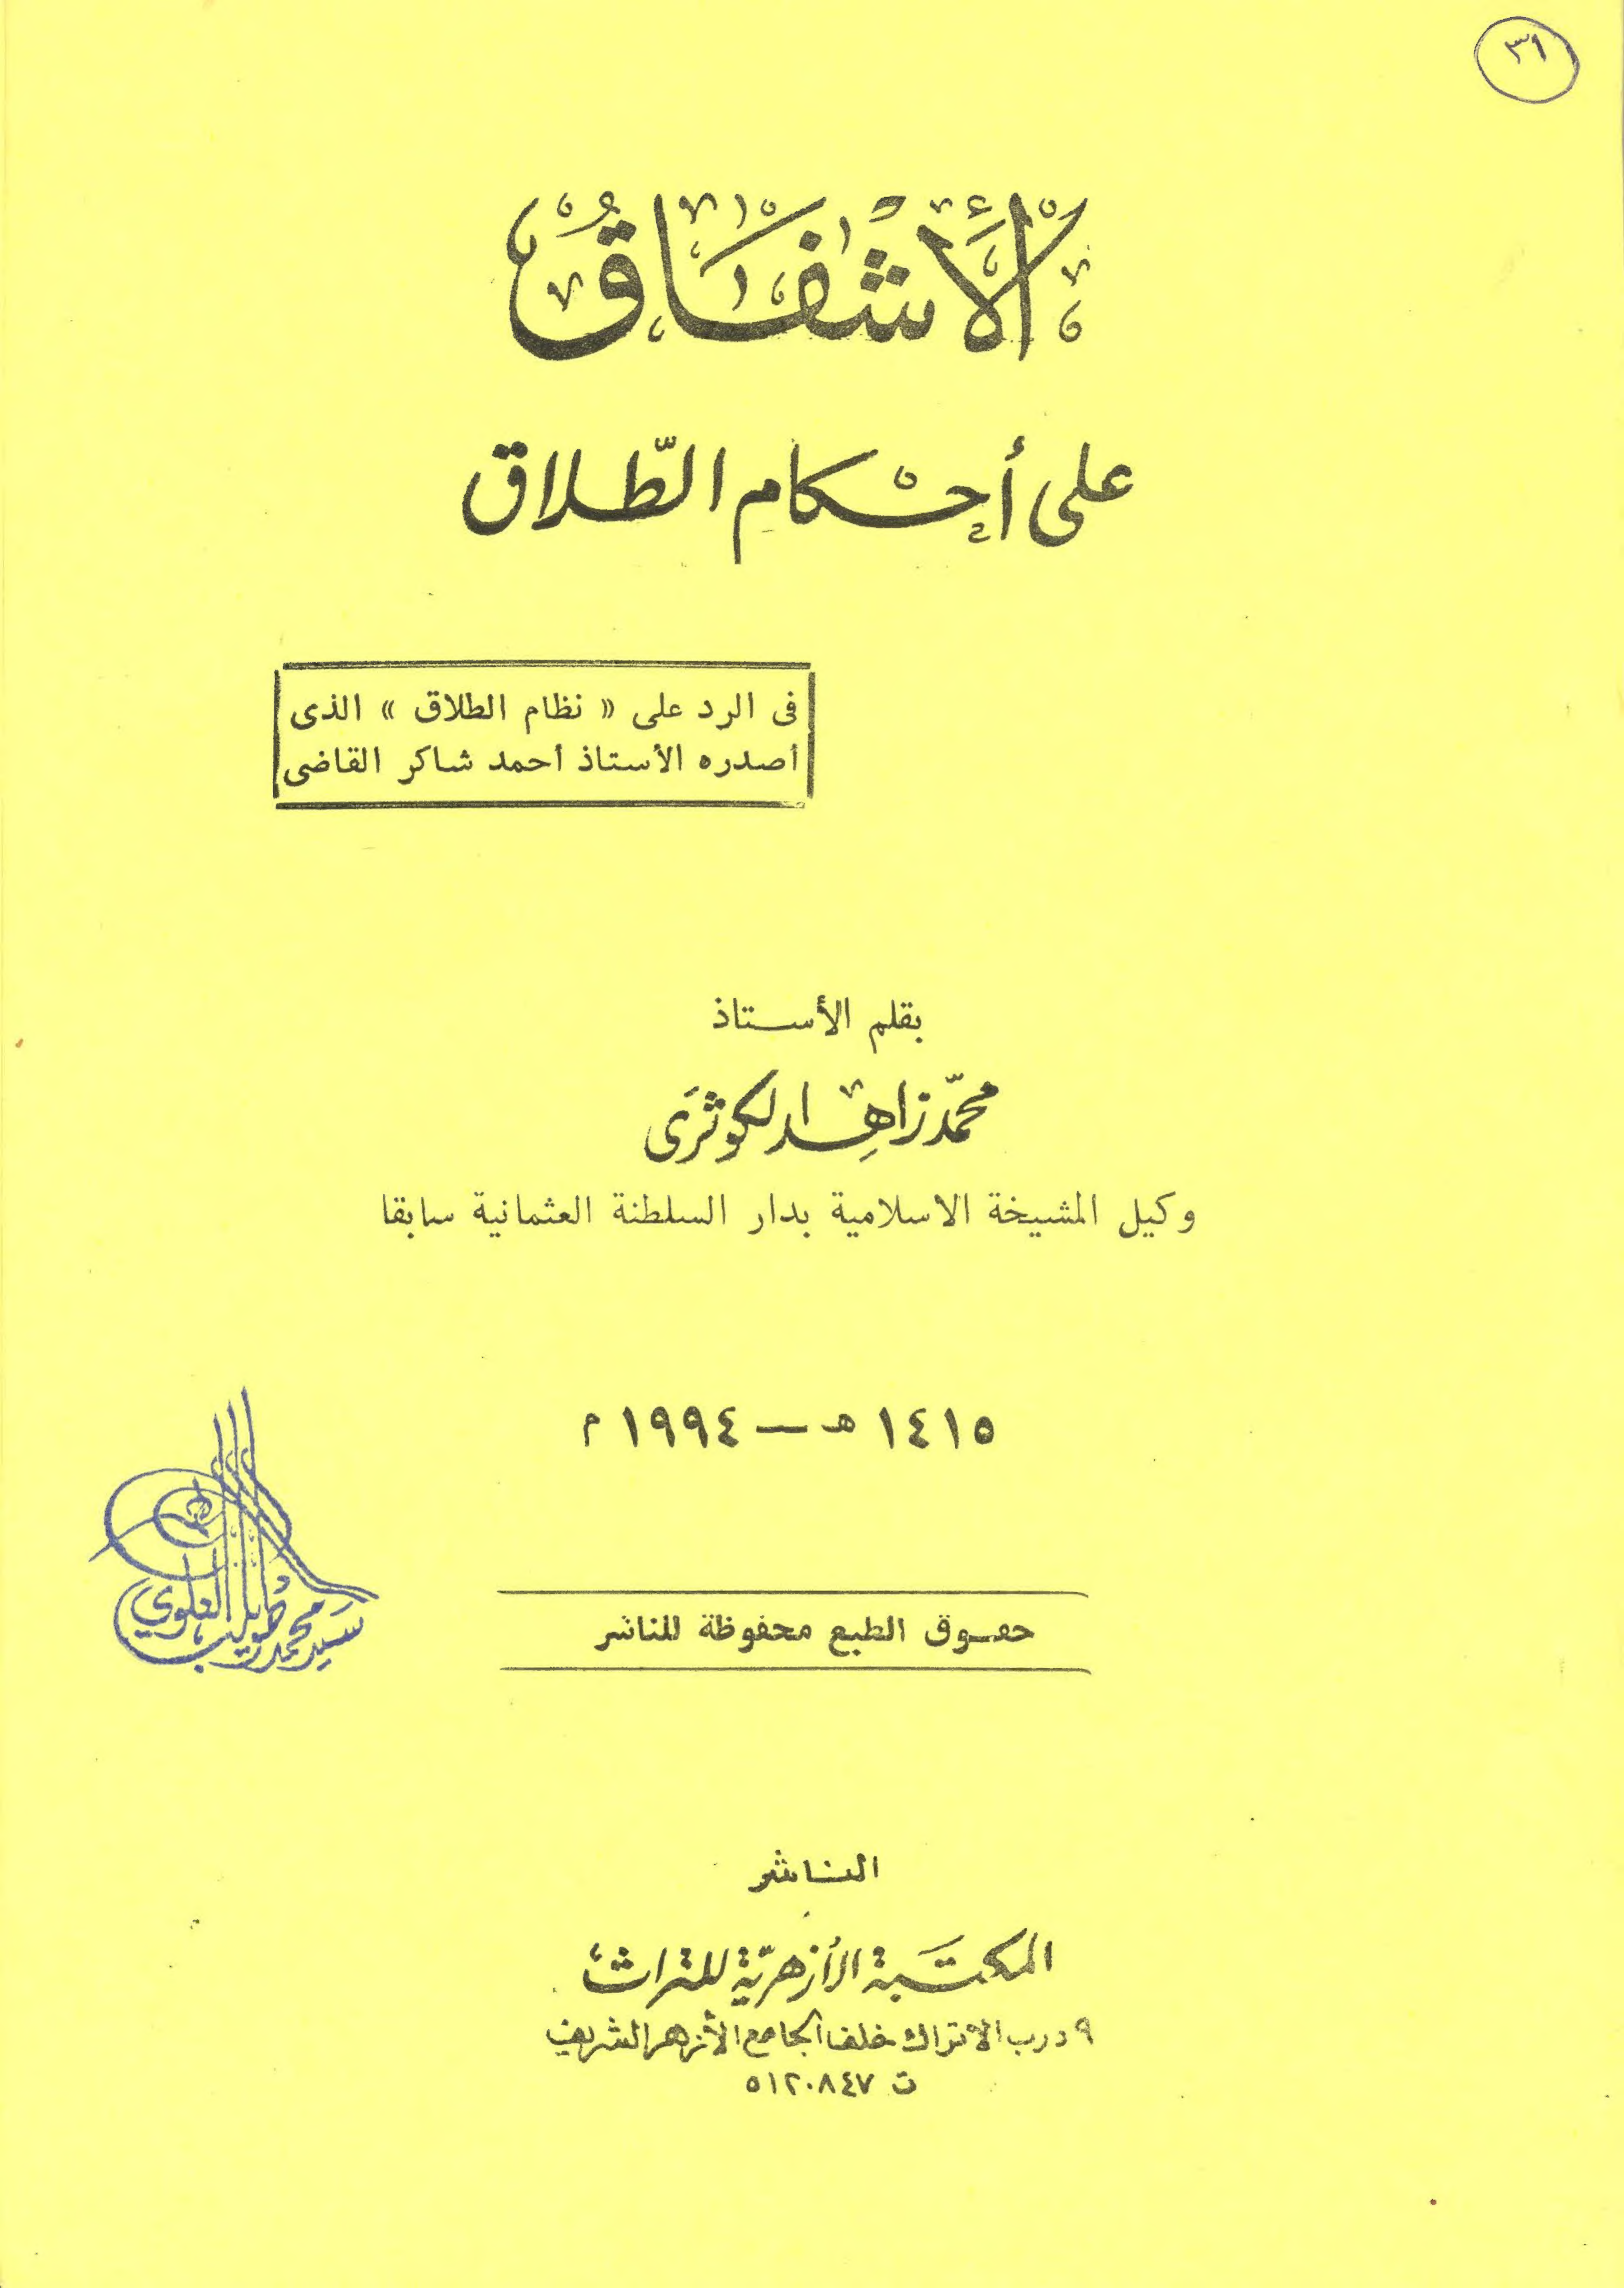 ٣١
الأَشْفَاقُ
على أحْكام الطّلاق
فى الرد على « نظام الطلاق » الذى
أصدره الأستاذ أحمد شاكر القاضى
بقلم الأستاذ
محمّد زاهِد الكوثرَى
وكيل المشيخة الاسلامية بدار السلطنة العثمانية سابقا
١٤١٥ هـ — ١٩٩٤ م
سيد محمد العلوي
حقوق الطبع محفوظة للناشر
الناشر
المكتَبة الأزهريّة للتراث
٩ درب الأتراك خلف الجامع الأزهر الشريف
ت ٥١٢٠٨٤٧